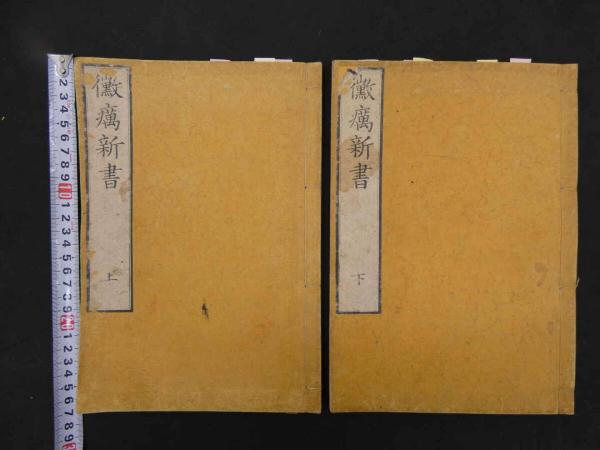 黴癘新書
上
黴癘新書
下
2 3 4 5 6 7 8 9 10 1 2 3 4 5 6 7 8 9 20 1 2 3 4 5 6 7 8 9